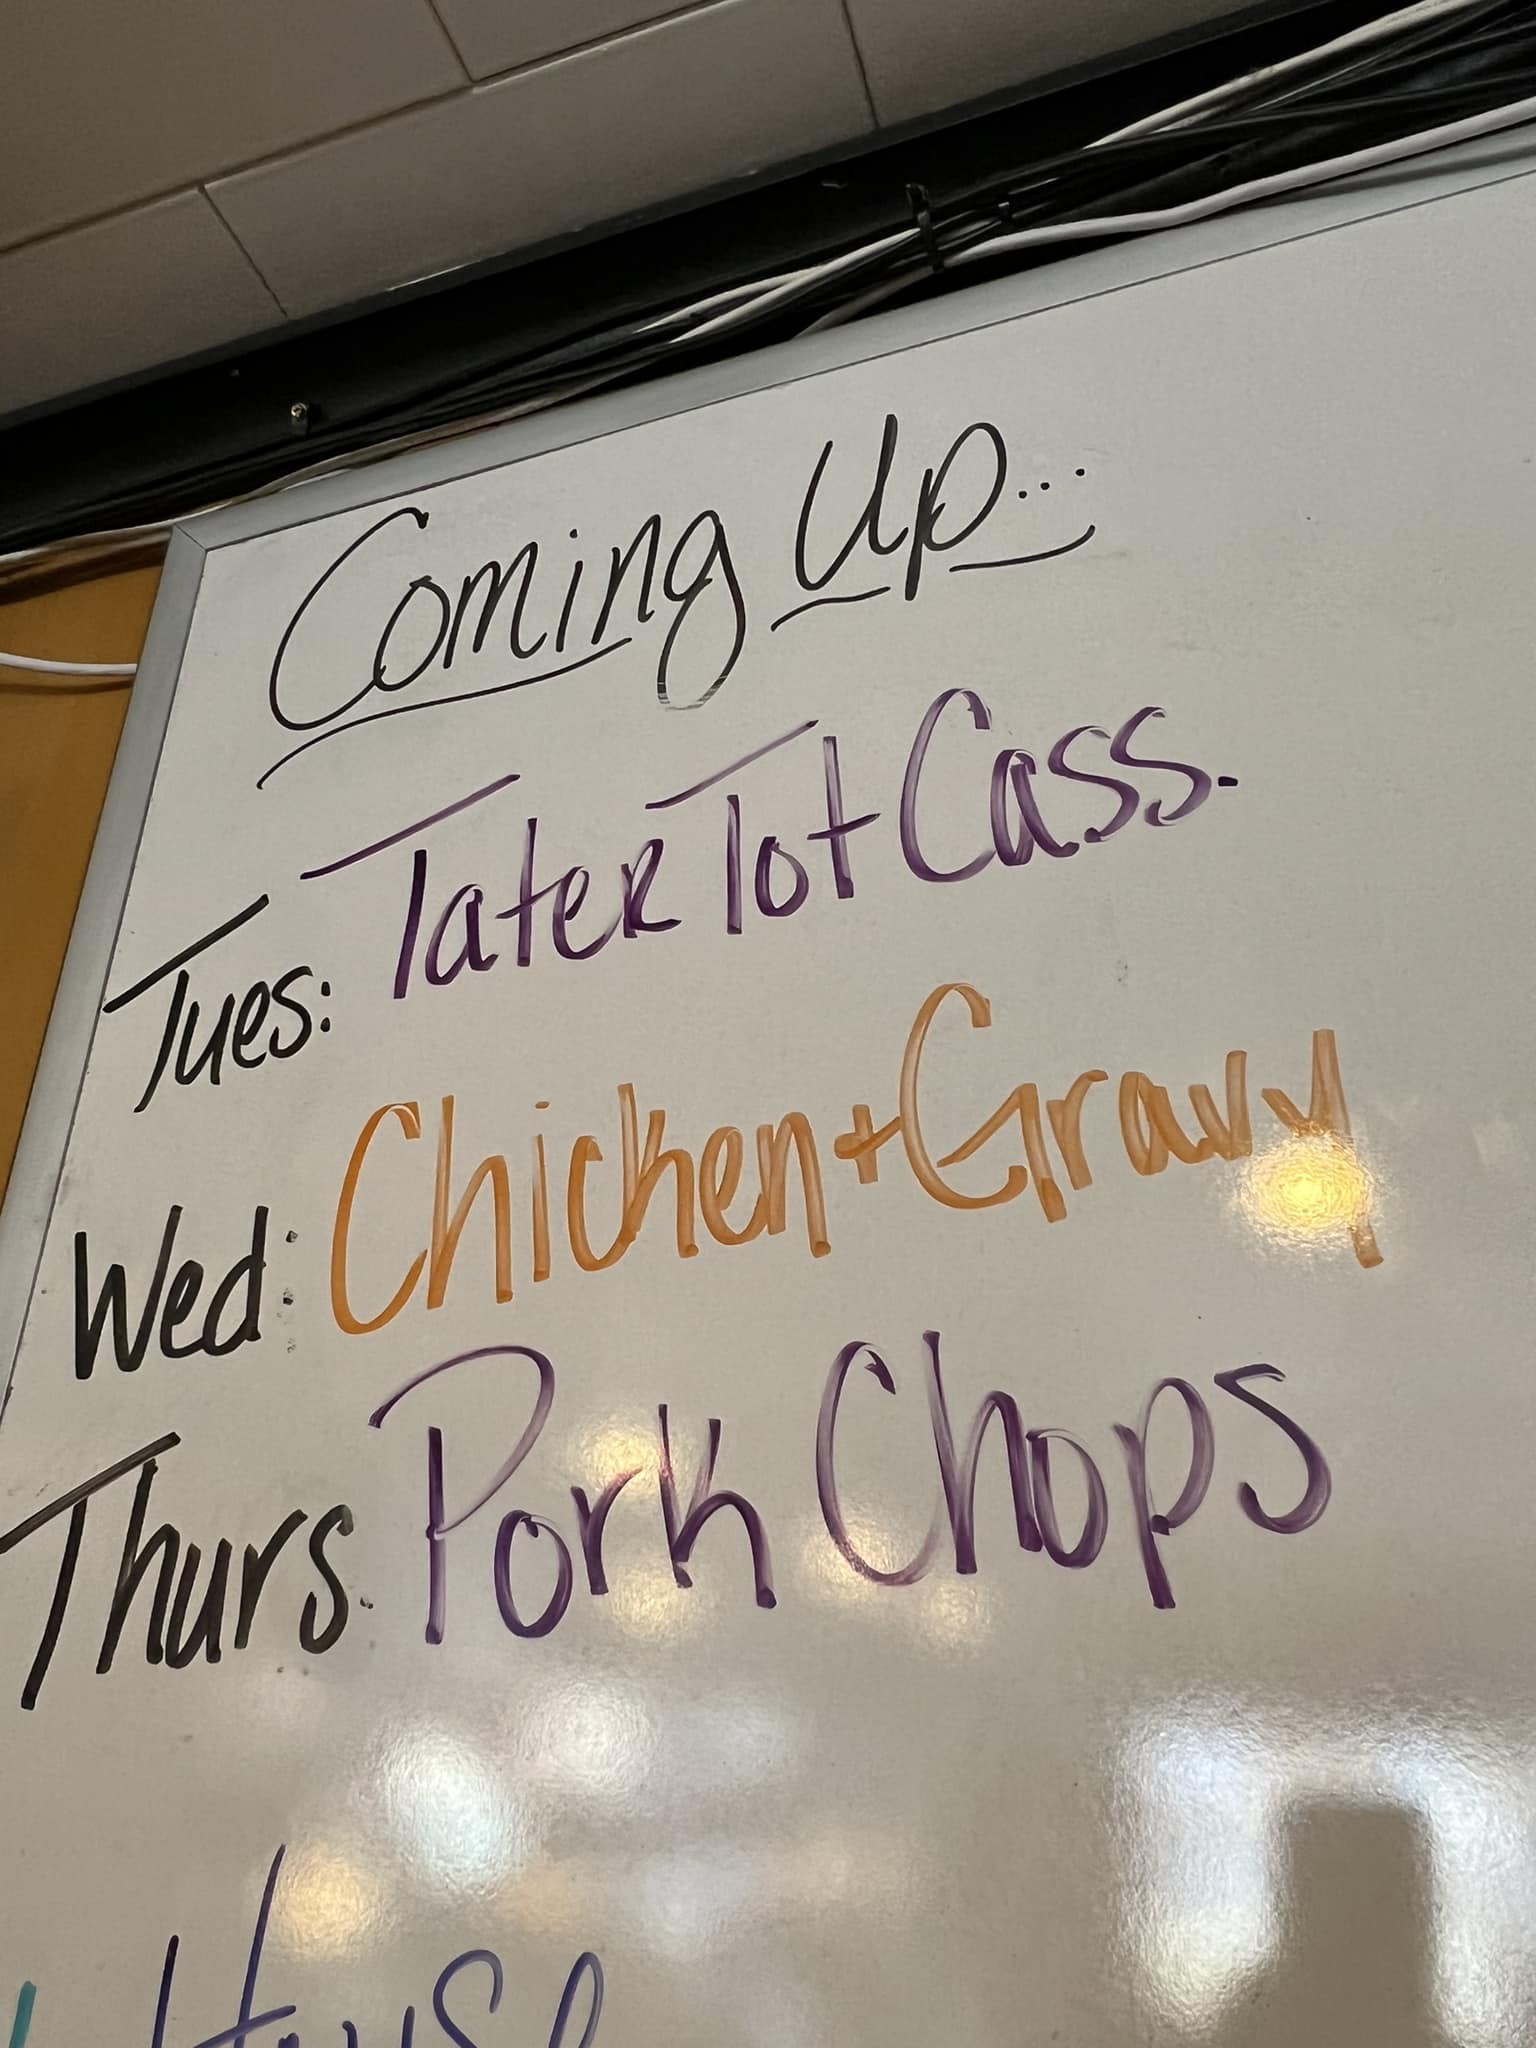 Coming Up...
Tues: Tater Tot Cass.
Wed: Chicken + Gravy
Thurs. Pork Chops
House